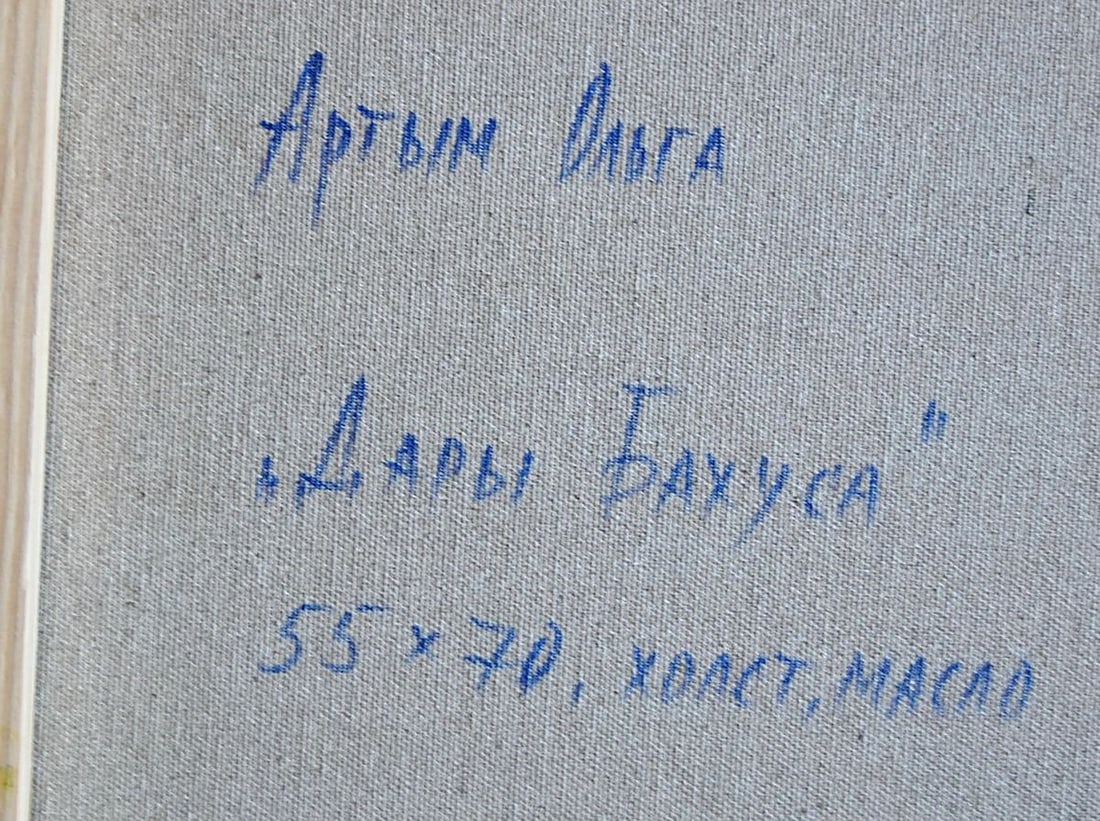 Артым Ольга
„Дары Бахуса"
55х70, холст, масло